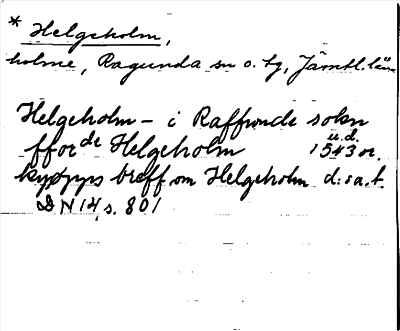 * Helgeholm,
holme, Ragunda sn o. tg, Jämtl. län
Helgeholm – i Raffwnde sokn
fforde Helgeholm u.d. 1543 or.
breff om Helgeholm d:o a. t.
DN 14, s. 801